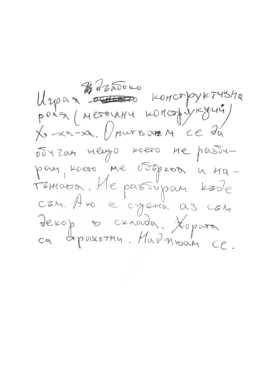 дълбоко
Играя конструктивна
роля (метални конструкции)
Ха-ха-ха. Опитвам се да
обичам нещо което не разби-
рам, което ме обърква и на-
тъжава. Не разбирам къде
съм. Ако е сцена аз съм
декор в склада. Хората
са страхотни. Надявам се.